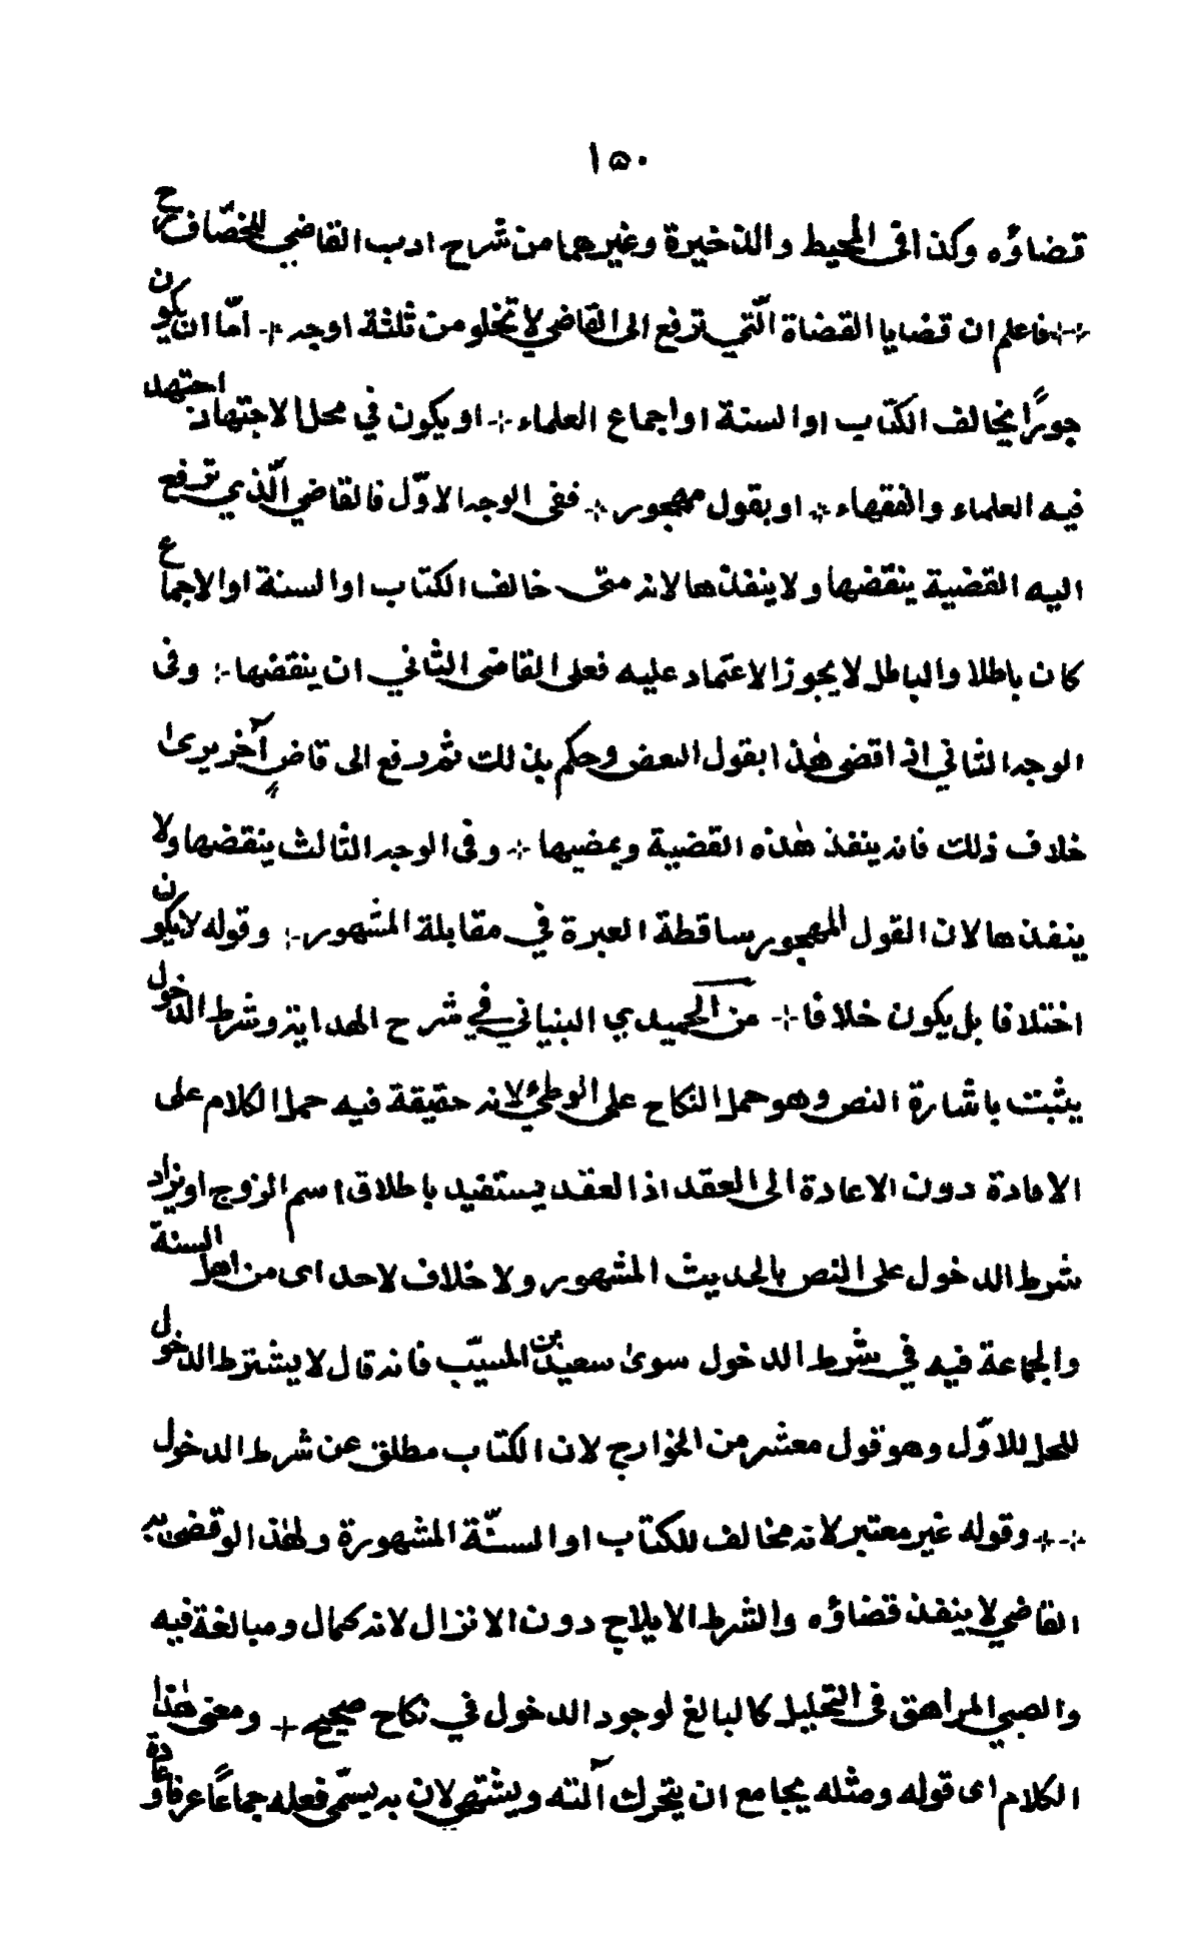 ١٥٠
قضاؤه وكذا فى المحيط والذخيرة وغيرهما من شراح ادب القاضي للخصّاف ح
فاعلم ان قضايا القضاة الّتي ترفع الى القاضي لا تخلو من ثلثة اوجه + امّا ان يكون
جورًا يخالف الكتاب او السنة او اجماع العلماء + او يكون في محل الاجتهاد اجتهد
فيه العلماء والفقهاء + او بقول مهجور + ففى الوجه الاوّل فالقاضي الّذي ترفع
اليه القضية ينقضها ولا ينفذها لانه متى خالف الكتاب او السنة او الاجماع
كان باطلا والباطل لا يجوز الاعتماد عليه فعلى القاضى الثّاني ان ينقضها + وفى
الوجه الثاني اذا قضى هٰذا بقول البعض وحكم بذلك ثم رفع الى قاضٍ آخر يرىٰ
خلاف ذلك فانه ينفذ هٰذه القضية ويمضيها + وفى الوجه الثّالث ينقضها ولا
ينفذها لان القول المهجور ساقطة العبرة في مقابلة المشهور + وقوله لا يكون
اختلافا بل يكون خلافا + من الحميدي البنياني في شرح الهداية وشرط الدخول
يثبت باشارة النص وهو حمل النكاح على الوطئ لانه حقيقة فيه حملا لكلام على
الافادة دون الاعادة الى العقد اذ العقد يستفيد باطلاق اسم الزوج او يزاد
شرط الدخول على النص بالحديث المشهور ولا خلاف لاحد اى من اهل السنة
والجماعة فيه في شرط الدخول سوىٰ سعيد بن المسيّب فانه قال لا يشترط الدخول
للحل للاوّل وهو قول معشر من الخوارج لان الكتاب مطلق عن شرط الدخول
+ + وقوله غير معتبر لانه مخالف للكتاب او السنّة المشهورة ولهٰذا لو قضى به
القاضي لا ينفذ قضاؤه والشرط الايلاج دون الانزال لانه كمال ومبالغة فيه
والصبي المراهق فى التحليل كالبالغ لوجود الدخول في نكاح صحيح + ومعنى هٰذا
الكلام اى قوله ومثله يجامع ان يتحرك آلته ويشتهي لان به يسمّى فعله جماعًا عرفا وعادة